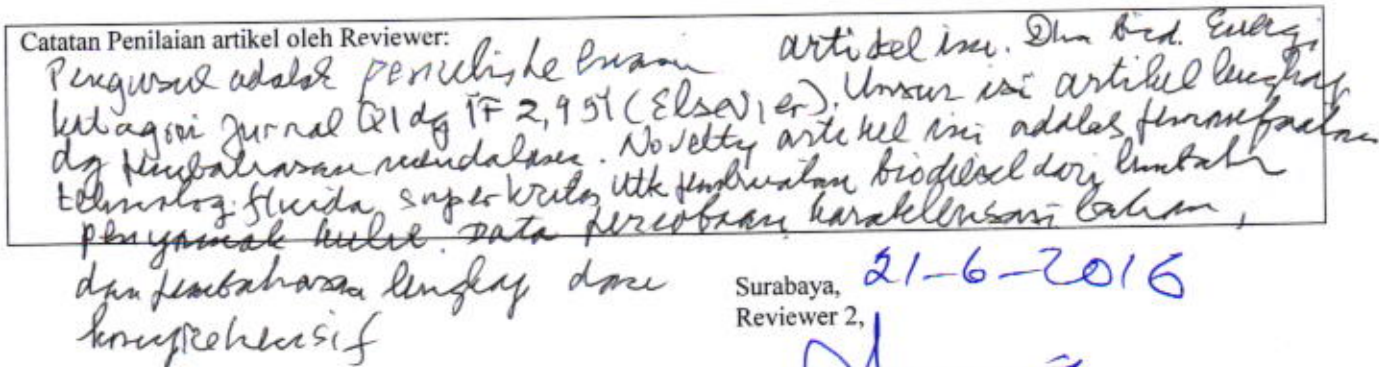 Catatan Penilaian artikel oleh Reviewer:
Pengusul adalah penulis ke artikel ini. Dlm Bid. Energi
kategori Jurnal Q1 dg IF 2,951 (Elsevier). Unsur isi artikel lengkap
dg pembahasan mendalam. Novelty artikel ini adalah pemanfaatan
teknologi fluida superkritis utk pembuatan biodiesel dari limbah
penyamak kulit. Data percobaan, karakterisasi bahan,
dan pembahasan lengkap dan
komprehensif
Surabaya, 21-6-2016
Reviewer 2,